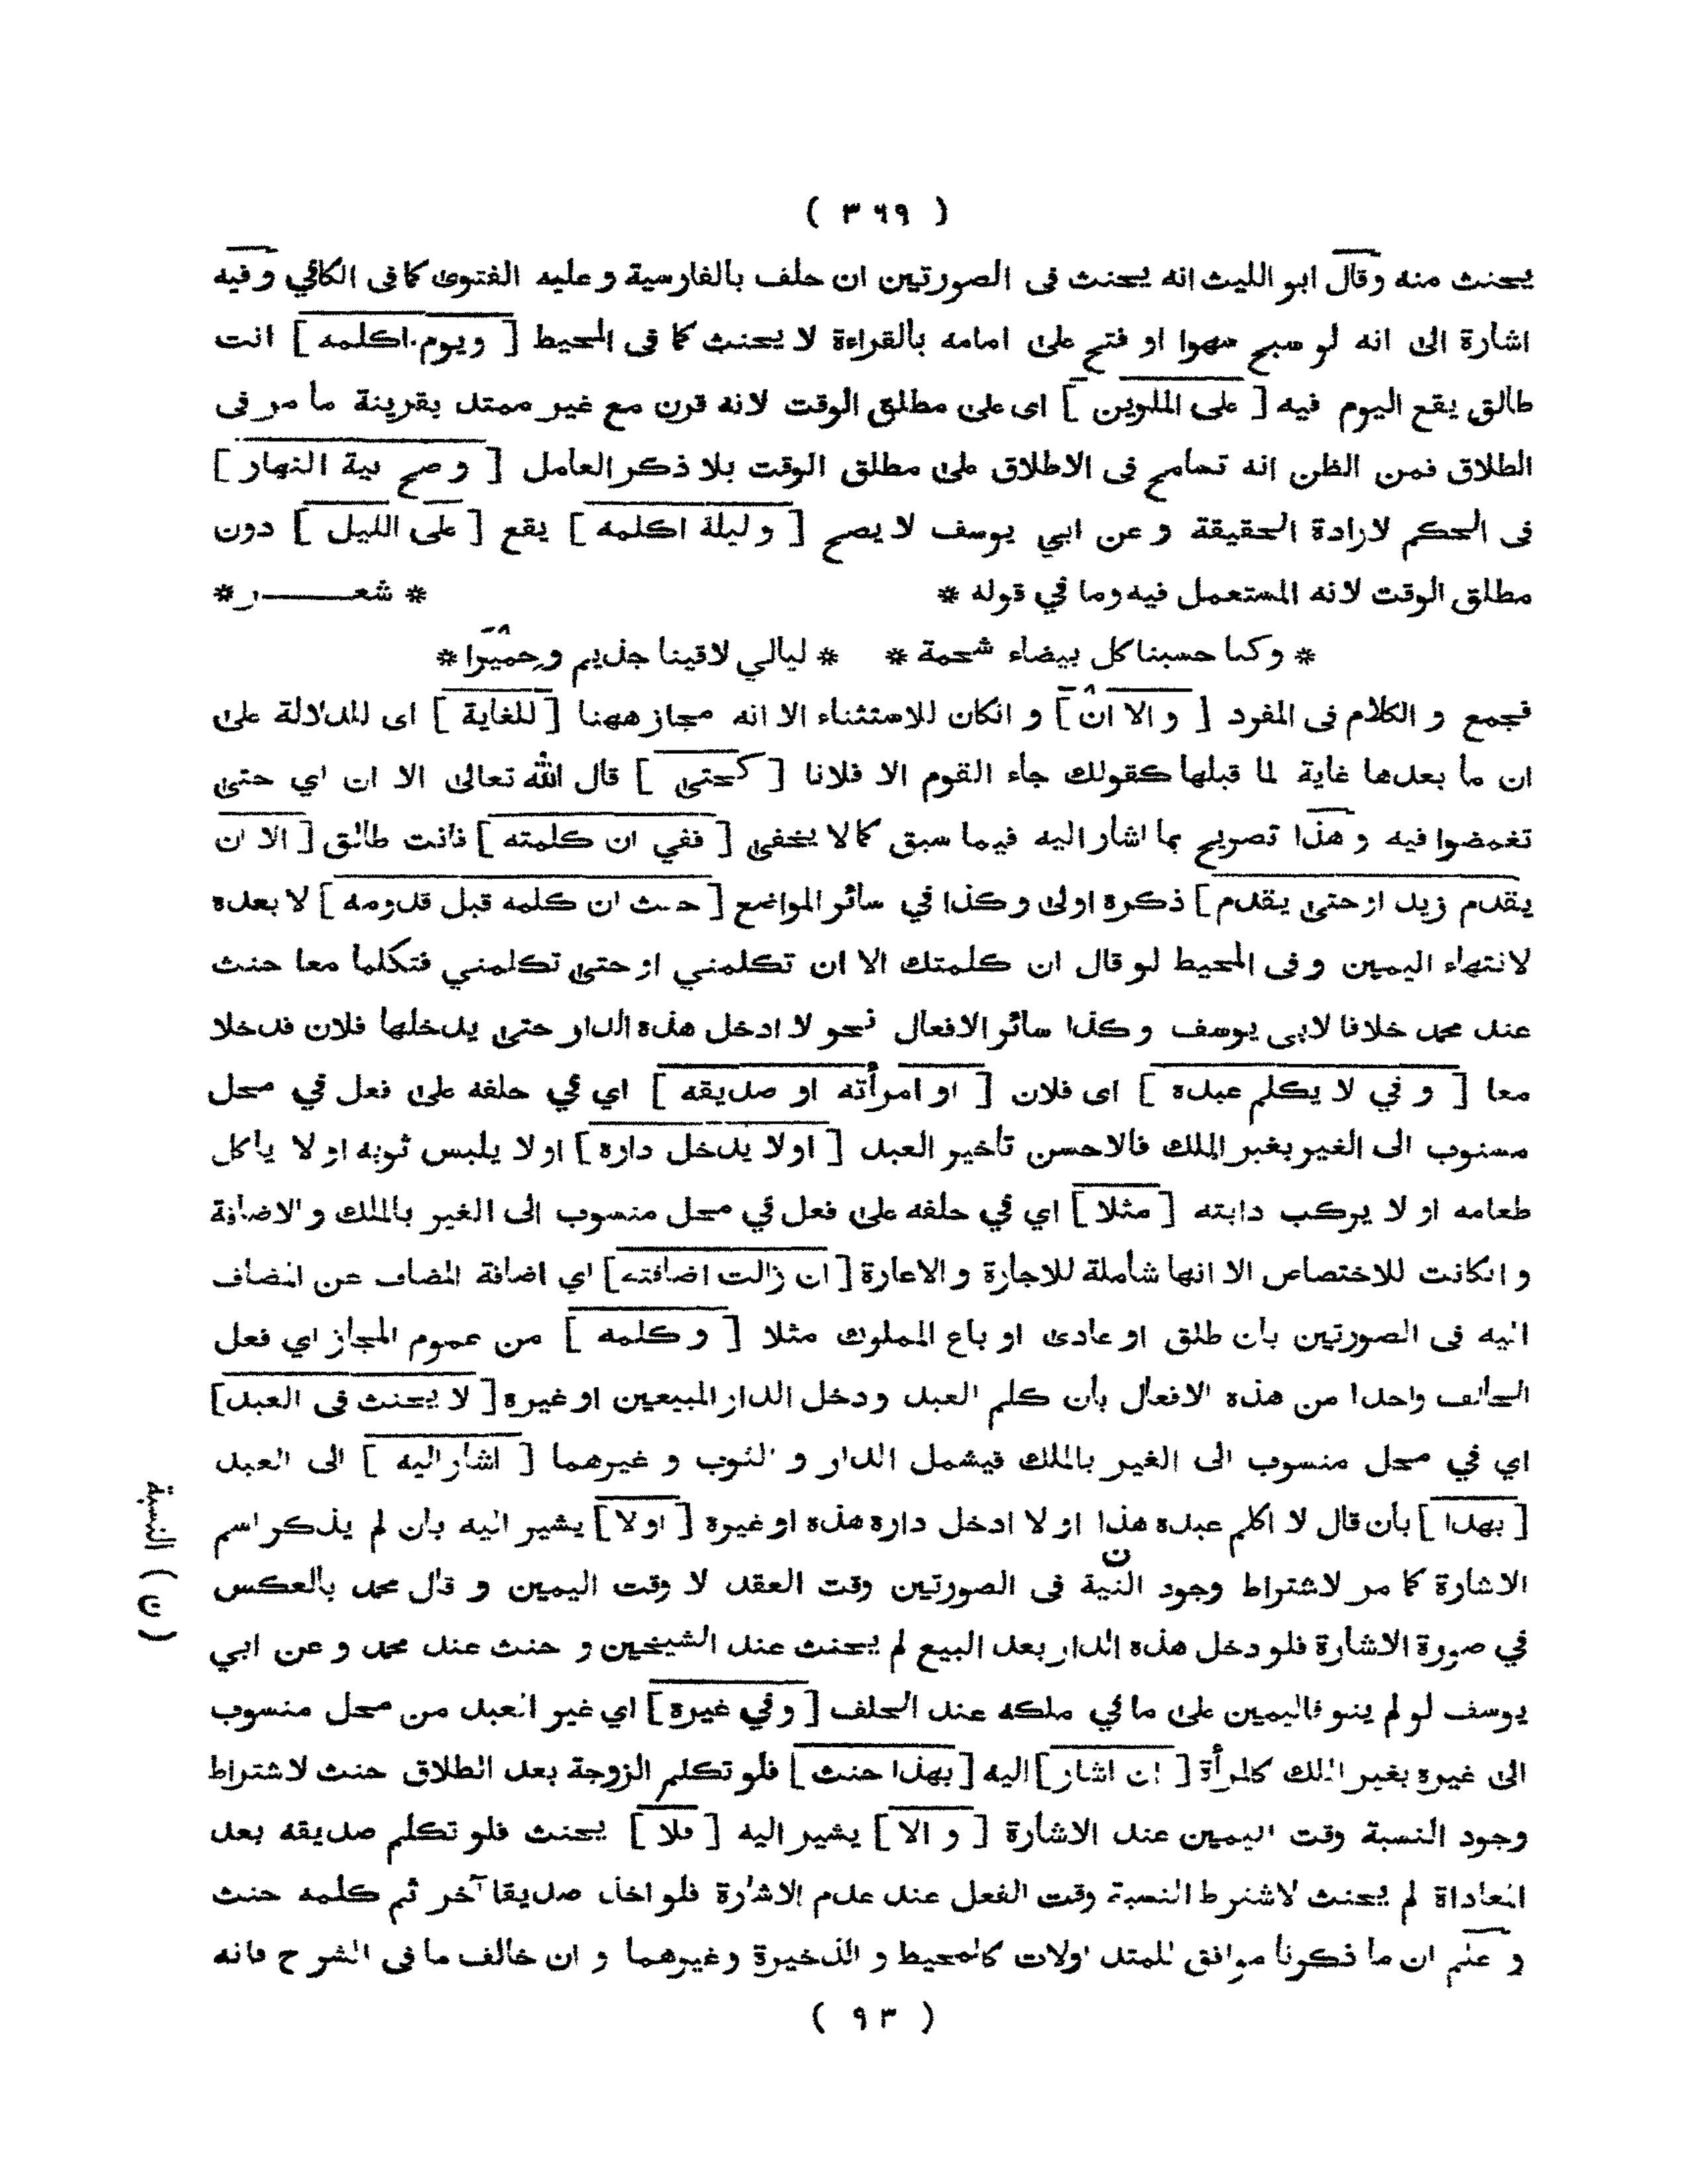 ( ٣٦٩ )
يحنث منه وقال ابو الليث انه يحنث فى الصورتين ان حلف بالفارسية و عليه الفتوى كما فى الكافي و فيه
اشارة الى انه لو سبح سهوا او فتح على امامه بالقراءة لا يحنث كما فى المحيط [ ويوم اكلمه ] انت
طالق يقع اليوم فيه [ على الملوين ] اى على مطلق الوقت لانه قرن مع غير ممتد بقرينة ما مر فى
الطلاق فمن الظن انه تسامح فى الاطلاق على مطلق الوقت بلا ذكر العامل [ و صح نية النهار ]
فى الحكم لارادة الحقيقة و عن ابي يوسف لا يصح [ و ليلة اكلمه ] يقع [ على الليل ] دون
مطلق الوقت لانه المستعمل فيه وما في قوله * * شعر *
* وكنا حسبنا كل بيضاء شحمة * * ليالي لاقينا جذيم و حميرا *
فجمع و الكلام فى المفرد [ و الا ان ] و انكان للاستثناء الا انه مجاز ههنا [ للغاية ] اى للدلالة على
ان ما بعدها غاية لما قبلها كقولك جاء القوم الا فلانا [ كحتى ] قال الله تعالى الا ان اي حتى
تغمضوا فيه و هذا تصريح بما اشار اليه فيما سبق كما لا يخفى [ ففي ان كلمته ] فانت طالق [ الا ان
يقدم زيد او حتى يقدم ] ذكره اولى و كذا في سائر المواضع [ حنث ان كلمه قبل قدومه ] لا بعده
لانتهاء اليمين و فى المحيط لو قال ان كلمتك الا ان تكلمني او حتى تكلمني فتكلما معا حنث
عند محمد خلافا لابى يوسف و كذا سائر الافعال نحو لا ادخل هذه الدار حتى يدخلها فلان فدخلا
معا [ و في لا يكلم عبده ] اى فلان [ او امرأته او صديقه ] اي في حلفه على فعل في محل
مسنوب الى الغير بغير الملك فالاحسن تأخير العبد [ او لا يدخل داره ] او لا يلبس ثوبه او لا يأكل
طعامه او لا يركب دابته [ مثلا ] اي في حلفه على فعل في محل منسوب الى الغير بالملك و الاضافة
و انكانت للاختصاص الا انها شاملة للاجارة و الاعارة [ ان زالت اضافته ] اي اضافة المضاف عن المضاف
اليه فى الصورتين بان طلق او عادى او باع المملوك مثلا [ و كلمه ] من عموم المجاز اي فعل
الحالف واحدا من هذه الافعال بأن كلم العبد و دخل الدار المبيعين او غيره [ لا يحنث فى العبد ]
اي في محل منسوب الى الغير بالملك فيشمل الدار و الثوب و غيرهما [ اشار اليه ] الى العبد
[ بهذا ] بأن قال لا اكلم عبده هذا او لا ادخل داره هذه او غيره [ او لا ] يشير اليه بان لم يذكر اسم
الاشارة كما مر لاشتراط وجود النية ن فى الصورتين وقت العقد لا وقت اليمين و قال محمد بالعكس
في صورة الاشارة فلو دخل هذه الدار بعد البيع لم يحنث عند الشيخين و حنث عند محمد و عن ابي
يوسف لو لم ينو فاليمين على ما في ملكه عند الحلف [ و في غيره ] اي غير العبد من محل منسوب
الى غيره بغير الملك كالمرأة [ ان اشار ] اليه [ بهذا حنث ] فلو تكلم الزوجة بعد الطلاق حنث لاشتراط
وجود النسبة وقت اليمين عند الاشارة [ و الا ] يشير اليه [ فلا ] يحنث فلو تكلم صديقه بعد
المعاداة لم يحنث لاشتراط النسبة وقت الفعل عند عدم الاشارة فلو اخذ صديقا آخر ثم كلمه حنث
و علم ان ما ذكرنا موافق للمتداولات كالمحيط و الذخيرة وغيرهما و ان خالف ما فى الشرح فانه
( ٩٣ )
( ن ) النسبة